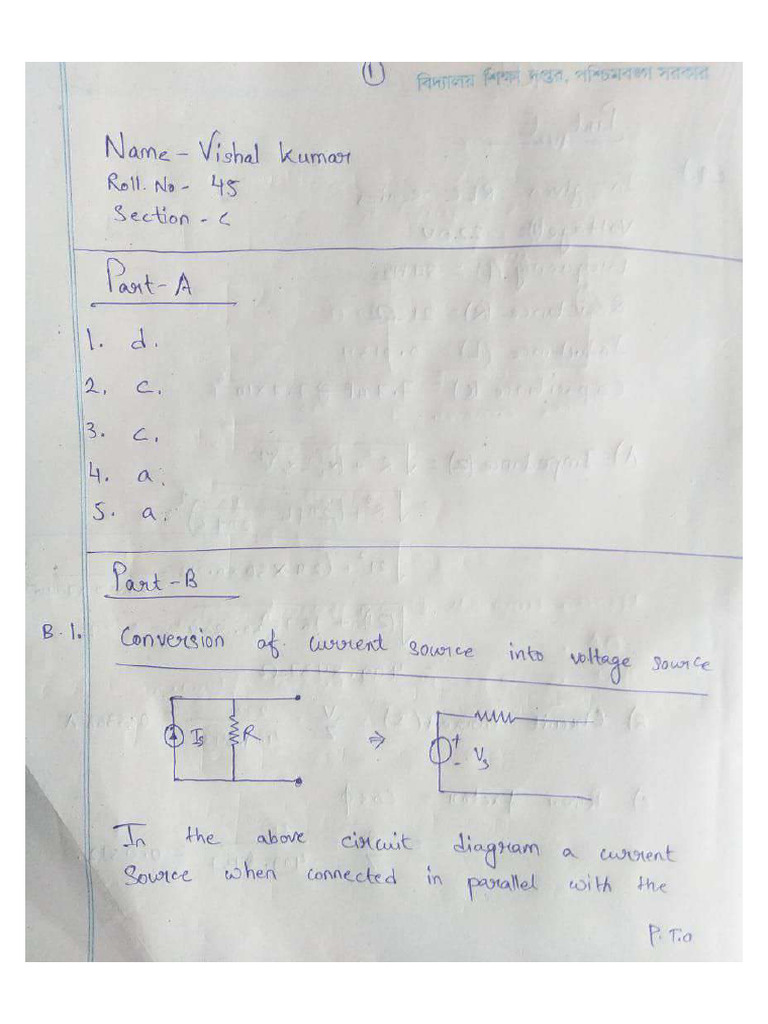 1
বিদ্যালয় শিক্ষা দপ্তর, পশ্চিমবঙ্গ সরকার
Name - Vishal Kumar
Roll. No - 45
Section - C
Part-A
1. d.
2. c.
3. c.
4. a.
5. a.
Part-B
B.1. Conversion of current source into voltage source
Is R ⇒ + - Vs
In the above circuit diagram a current
Source when connected in parallel with the
P.T.O